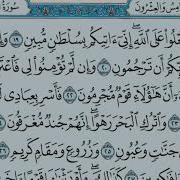 وَالعِشْرُونَ سُورَةُ
تَعْلُوا۟ عَلَى ٱللَّهِ إِنِّىٓ ءَاتِيكُم بِسُلْطَٰنٍ مُّبِينٍ ١٩
أَن تَرْجُمُونِ ٢٠ وَإِن لَّمْ تُؤْمِنُوا۟ لِى
أَنَّ هَٰٓؤُلَآءِ قَوْمٌ مُّجْرِمُونَ ٢٢ فَأَسْرِ بِعِبَادِى
٢٣ وَٱتْرُكِ ٱلْبَحْرَ رَهْوًا ۖ إِنَّهُمْ جُندٌ مُّغْرَقُونَ ٢٤
جَنَّٰتٍ وَعُيُونٍ ٢٥ وَزُرُوعٍ وَمَقَامٍ كَرِيمٍ ٢٦